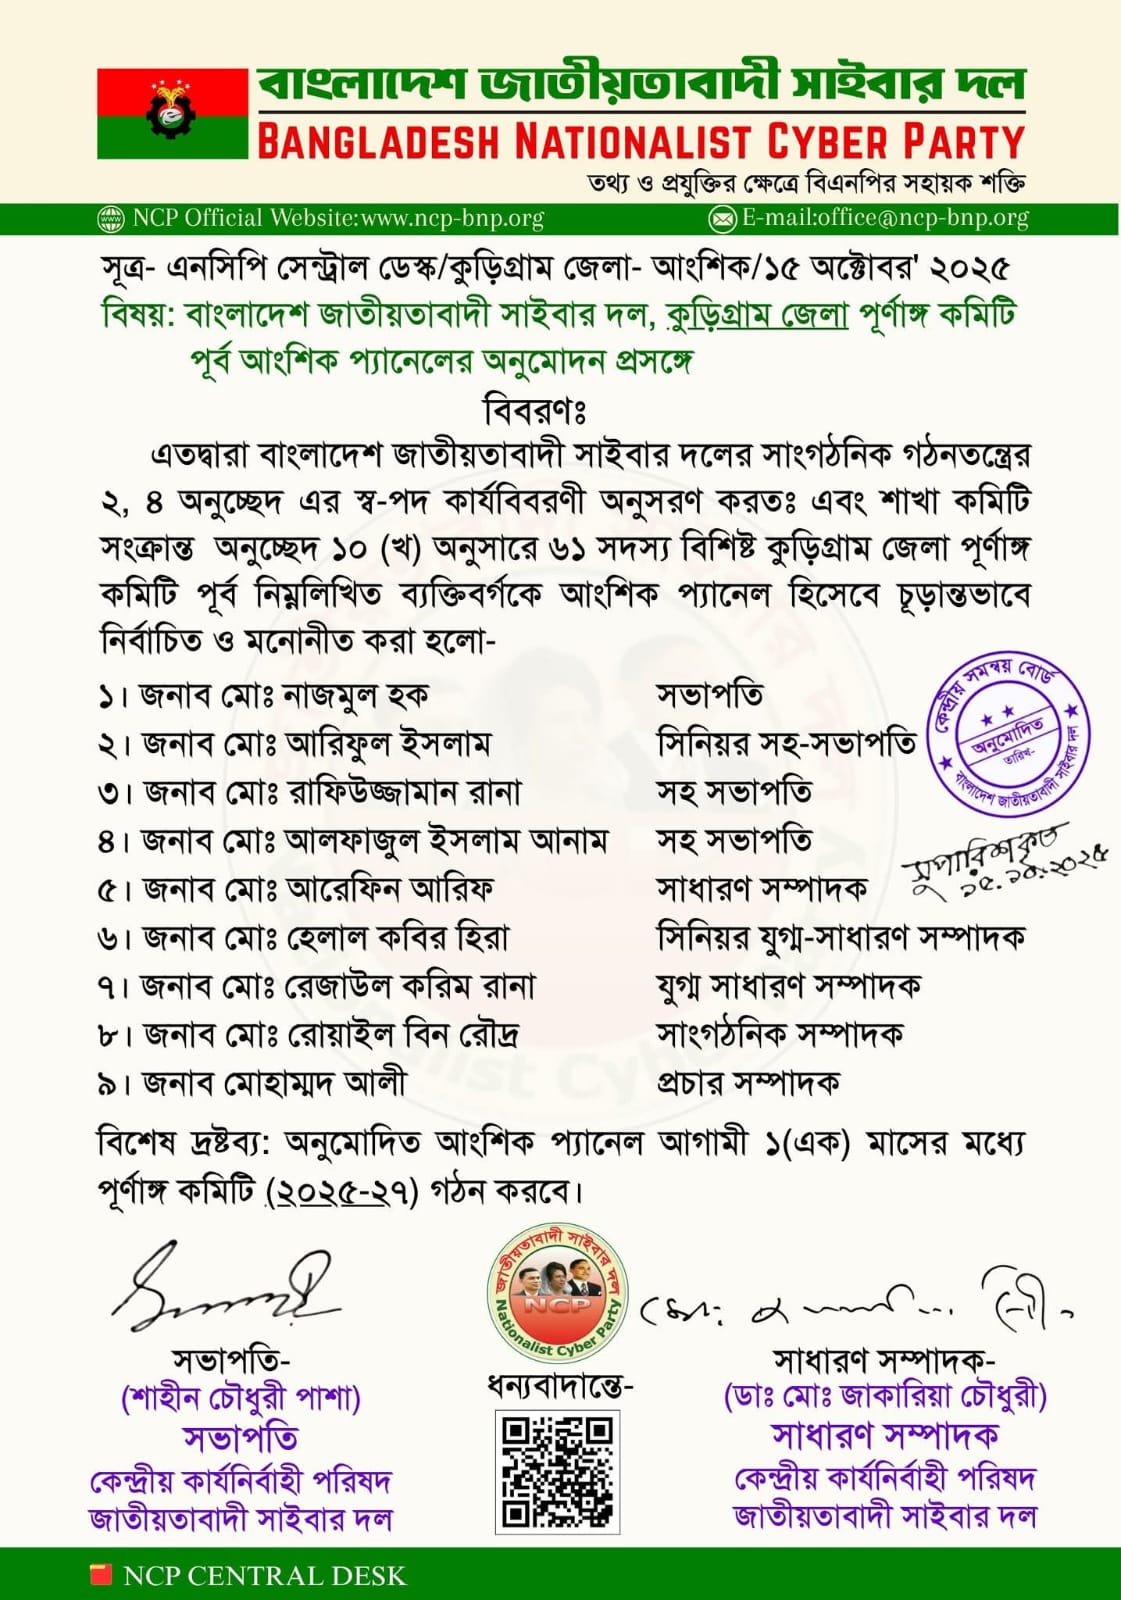 বাংলাদেশ জাতীয়তাবাদী সাইবার দল
BANGLADESH NATIONALIST CYBER PARTY
তথ্য ও প্রযুক্তির ক্ষেত্রে বিএনপির সহায়ক শক্তি
NCP Official Website:www.ncp-bnp.org
E-mail:office@ncp-bnp.org
সূত্র- এনসিপি সেন্ট্রাল ডেস্ক/কুড়িগ্রাম জেলা- আংশিক/১৫ অক্টোবর' ২০২৫
বিষয়: বাংলাদেশ জাতীয়তাবাদী সাইবার দল, কুড়িগ্রাম জেলা পূর্ণাঙ্গ কমিটি
পূর্ব আংশিক প্যানেলের অনুমোদন প্রসঙ্গে
বিবরণঃ
এতদ্বারা বাংলাদেশ জাতীয়তাবাদী সাইবার দলের সাংগঠনিক গঠনতন্ত্রের
২, ৪ অনুচ্ছেদ এর স্ব-পদ কার্যবিবরণী অনুসরণ করতঃ এবং শাখা কমিটি
সংক্রান্ত অনুচ্ছেদ ১০ (খ) অনুসারে ৬১ সদস্য বিশিষ্ট কুড়িগ্রাম জেলা পূর্ণাঙ্গ
কমিটি পূর্ব নিম্নলিখিত ব্যক্তিবর্গকে আংশিক প্যানেল হিসেবে চূড়ান্তভাবে
নির্বাচিত ও মনোনীত করা হলো-
১। জনাব মোঃ নাজমুল হক সভাপতি
২। জনাব মোঃ আরিফুল ইসলাম সিনিয়র সহ-সভাপতি
৩। জনাব মোঃ রাফিউজ্জামান রানা সহ সভাপতি
৪। জনাব মোঃ আলফাজুল ইসলাম আনাম সহ সভাপতি
৫। জনাব মোঃ আরেফিন আরিফ সাধারণ সম্পাদক
৬। জনাব মোঃ হেলাল কবির হিরা সিনিয়র যুগ্ম-সাধারণ সম্পাদক
৭। জনাব মোঃ রেজাউল করিম রানা যুগ্ম সাধারণ সম্পাদক
৮। জনাব মোঃ রোয়াইল বিন রৌদ্র সাংগঠনিক সম্পাদক
৯। জনাব মোহাম্মদ আলী প্রচার সম্পাদক
কেন্দ্রীয় সমন্বয় বোর্ড
অনুমোদিত
তারিখ-
বাংলাদেশ জাতীয়তাবাদী সাইবার দল
সুপারিশকৃত
১৫.১০.২০২৫
বিশেষ দ্রষ্টব্য: অনুমোদিত আংশিক প্যানেল আগামী ১(এক) মাসের মধ্যে
পূর্ণাঙ্গ কমিটি (২০২৫-২৭) গঠন করবে।
জাতীয়তাবাদী সাইবার দল
NCP
Nationalist Cyber Party
ধন্যবাদান্তে-
সভাপতি-
(শাহীন চৌধুরী পাশা)
সভাপতি
কেন্দ্রীয় কার্যনির্বাহী পরিষদ
জাতীয়তাবাদী সাইবার দল
সাধারণ সম্পাদক-
(ডাঃ মোঃ জাকারিয়া চৌধুরী)
সাধারণ সম্পাদক
কেন্দ্রীয় কার্যনির্বাহী পরিষদ
জাতীয়তাবাদী সাইবার দল
NCP CENTRAL DESK